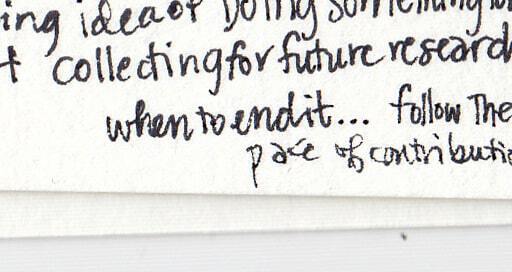 ing idea of Doing something
t collecting for future research
when to end it... follow The
pace of contributi